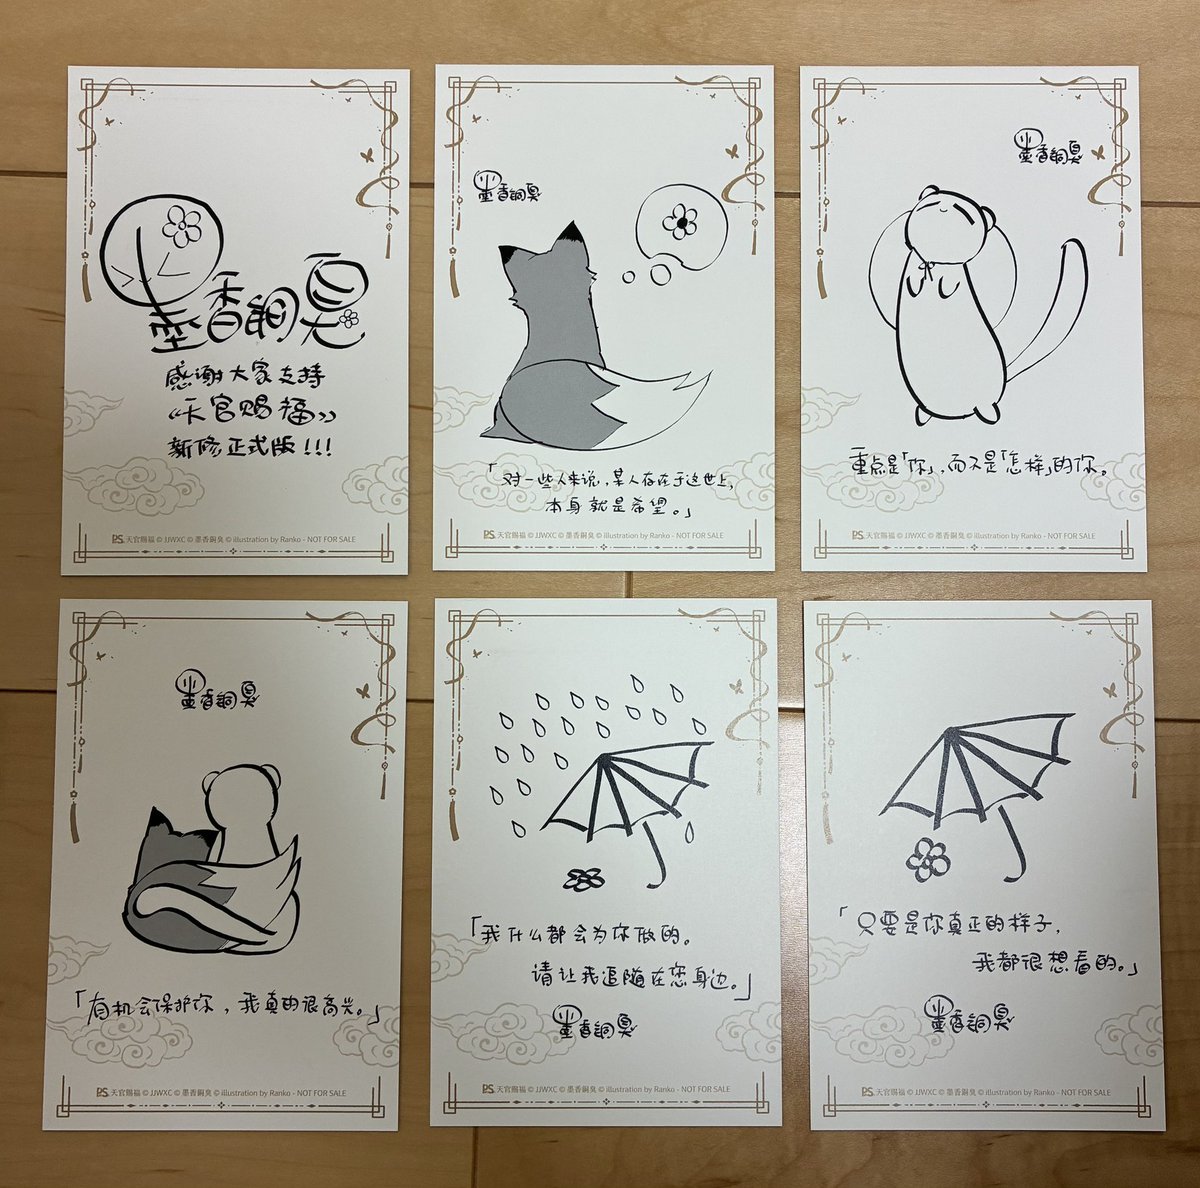 墨香銅臭
感谢大家支持
《天官赐福》
新修正式版!!!
PS 天官賜福 © JJWXC © 墨香銅臭 © illustration by Ranko - NOT FOR SALE
墨香銅臭
「对一些人来说,某人存在于这世上,
本身就是希望。」
PS 天官賜福 © JJWXC © 墨香銅臭 © illustration by Ranko - NOT FOR SALE
墨香銅臭
重点是「你」,而不是「怎样」的你。
PS 天官賜福 © JJWXC © 墨香銅臭 © illustration by Ranko - NOT FOR SALE
墨香銅臭
「有机会保护你,我真的很高兴。」
PS 天官賜福 © JJWXC © 墨香銅臭 © illustration by Ranko - NOT FOR SALE
「我什么都会为你做的。
请让我追随在您身边。」
墨香銅臭
PS 天官賜福 © JJWXC © 墨香銅臭 © illustration by Ranko - NOT FOR SALE
「只要是你真正的样子,
我都很想看的。」
墨香銅臭
PS 天官賜福 © JJWXC © 墨香銅臭 © illustration by Ranko - NOT FOR SALE